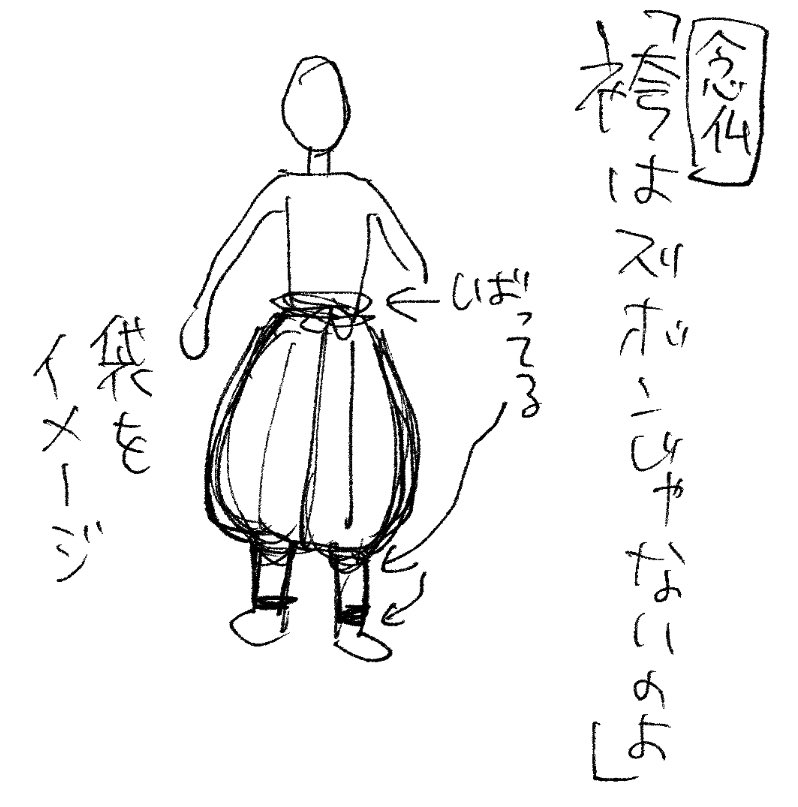 念仏
「袴はズボンじゃないのよ」
しばってる
袋を
イメージ